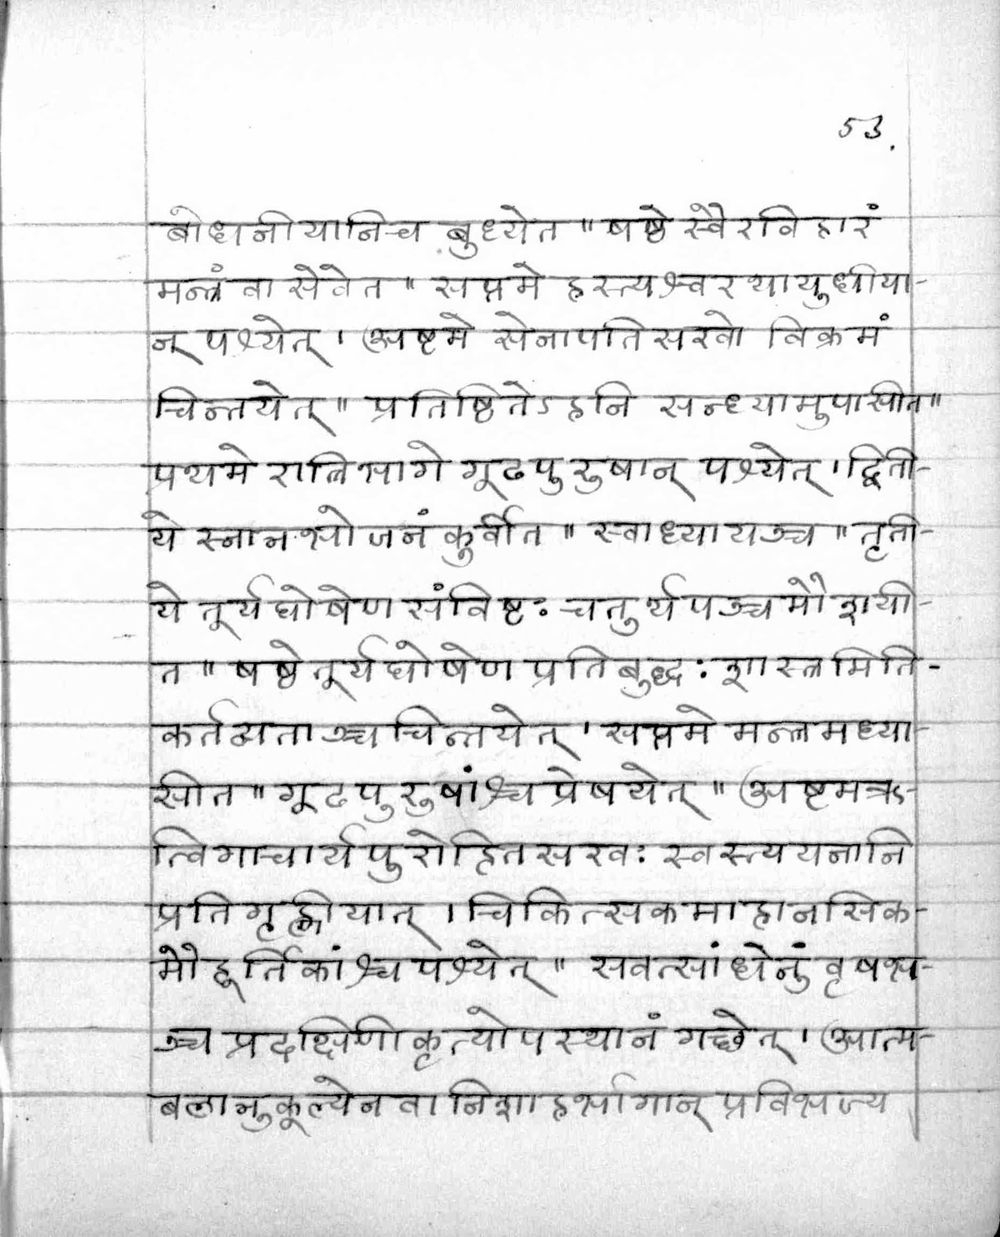 53.
बोधनीयानिच बुध्येत ॥ षष्ठे स्वैरविहारं
मन्त्रं वा सेवेत ॥ सप्तमे हस्त्यश्वरथायुधीया-
न् पश्येत् । अष्टमे सेनापतिसखो विक्रमं
चिन्तयेत् ॥ प्रतिष्ठितेऽहनि सन्ध्यामुपासीत ॥
प्रथमे रात्रिभागे गूढपुरुषान् पश्येत् । द्विती-
ये स्नानभोजनं कुर्वीत ॥ स्वाध्यायञ्च ॥ तृती-
ये तूर्यघोषेण संविष्टः चतुर्थपञ्चमौ शयी-
त ॥ षष्ठे तूर्यघोषेण प्रतिबुद्धः शास्त्रमिति-
कर्तव्यताञ्च चिन्तयेत् । सप्तमे मन्त्रमध्या-
सीत ॥ गूढपुरुषांश्च प्रेषयेत् ॥ अष्टमऋ-
त्विगाचार्यपुरोहितसखः स्वस्त्ययनानि
प्रतिगृह्णीयात् । चिकित्सकमाहानसिक-
मौहूर्तिकांश्च पश्येत् ॥ सवत्सां धेनुं वृषभ-
ञ्च प्रदक्षिणीकृत्योपस्थानं गच्छेत् । आत्म-
बलानुकूल्येन वा निशाहर्भागान् प्रविभज्य